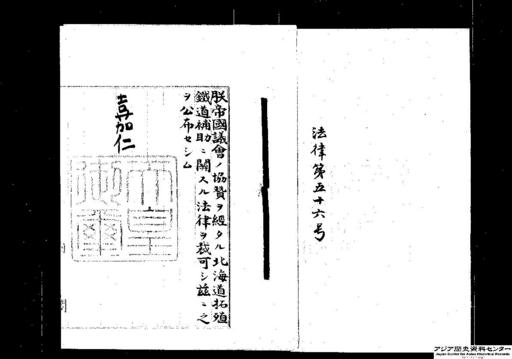 法律第五十六号
朕帝國議會ノ協賛ヲ經タル北海道拓殖
鐵道補助ニ關スル法律ヲ裁可シ茲ニ之
ヲ公布セシム
嘉仁
天皇
御璽
アジア歴史資料センター
Japan Center for Asian Historical Records